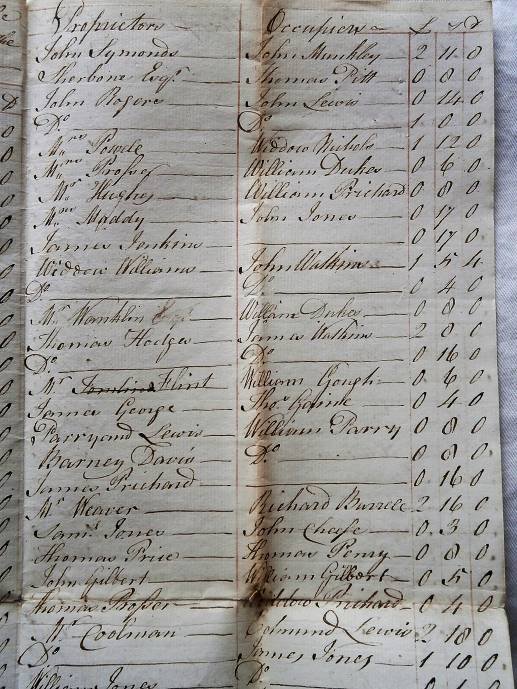 Proprietors Occupiers £ s d
John Symonds John Munkley 2 11 0
Sherborne Esqr. Thomas Pitt 0 8 0
John Rogers John Lewis 0 14 0
Do Do 1 0 0
Mrs Powele Widdow Nichols 1 12 0
Mrs Prosser William Dukes 0 6 0
Mr Hughes William Prichard 0 8 0
Mrs Maddy John Jones 0 17 0
James Jenkins 0 17 0
Widdow Williams John Watkins 1 5 4
Do Do 0 4 0
Mr Wanklin William Dukes 0 8 0
Thomas Hodges James Watkins 2 8 0
Do Do 0 16 0
Mr Tomlins Flint William Gough 0 6 0
James George Thos. 0 4 0
Parry and Lewis William Parry 0 8 0
Barney Davis Do 0 8 0
James Prichard 0 16 0
Mr Weaver Richard Burrele 2 16 0
Saml Jones John Chese 0 3 0
Thomas Price Thomas Penry 0 8 0
John Gilbert William Gilbert 0 5 0
Thomas Prosser Widdow Prichard 0 4 0
Mr Coolman Edmund Lewis 2 18 0
Do James Jones 1 10 0
William Jones Do